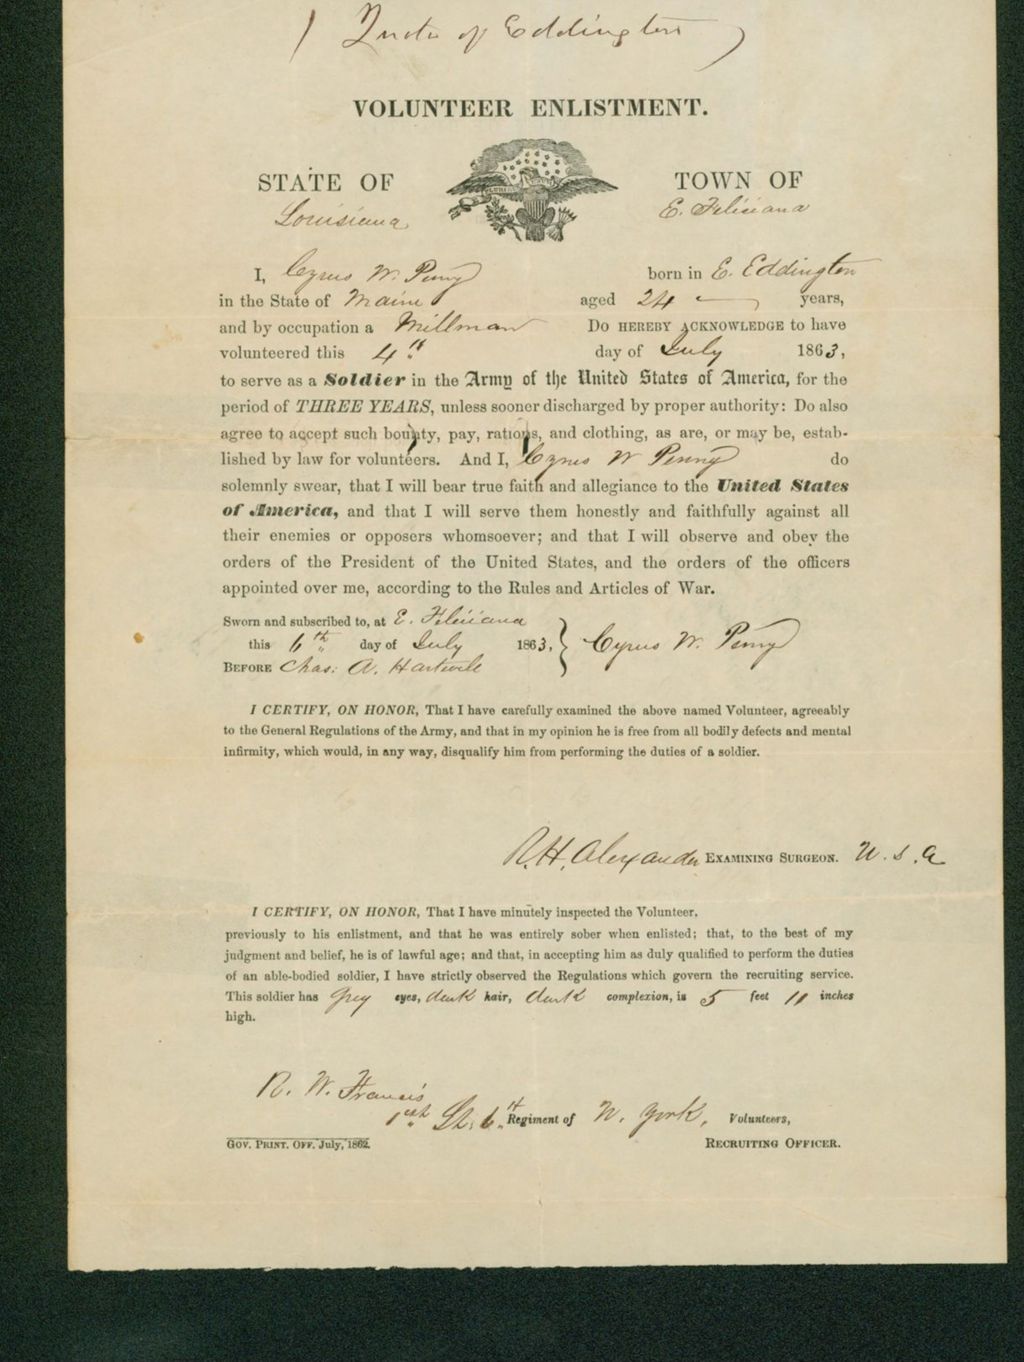 ( Quota of Eddington )
VOLUNTEER ENLISTMENT.
STATE OF TOWN OF
Louisiana E. Feliciana
I, Cyrus W. Penny born in E. Eddington
in the State of Maine aged 24 years,
and by occupation a Millman DO HEREBY ACKNOWLEDGE to have
volunteered this 4th day of July 1863,
to serve as a Soldier in the Army of the United States of America, for the
period of THREE YEARS, unless sooner discharged by proper authority: Do also
agree to accept such bounty, pay, rations, and clothing, as are, or may be, estab-
lished by law for volunteers. And I, Cyrus W Penny do
solemnly swear, that I will bear true faith and allegiance to the United States
of America, and that I will serve them honestly and faithfully against all
their enemies or opposers whomsoever; and that I will observe and obey the
orders of the President of the United States, and the orders of the officers
appointed over me, according to the Rules and Articles of War.
Sworn and subscribed to, at E. Feliciana
this 6th day of July 1863, } Cyrus W. Penny
BEFORE Chas. A. Hartwell
I CERTIFY, ON HONOR, That I have carefully examined the above named Volunteer, agreeably
to the General Regulations of the Army, and that in my opinion he is free from all bodily defects and mental
infirmity, which would, in any way, disqualify him from performing the duties of a soldier.
R. H. Alexander EXAMINING SURGEON. U. S. A
I CERTIFY, ON HONOR, That I have minutely inspected the Volunteer,
previously to his enlistment, and that he was entirely sober when enlisted; that, to the best of my
judgment and belief, he is of lawful age; and that, in accepting him as duly qualified to perform the duties
of an able-bodied soldier, I have strictly observed the Regulations which govern the recruiting service.
This soldier has Grey eyes, dark hair, dark complexion, is 5 feet 11 inches
high.
R. W. Francis
1st Lt. 6th Regiment of N. York, Volunteers,
GOV. PRINT. OFF. July, 1862. RECRUITING OFFICER.